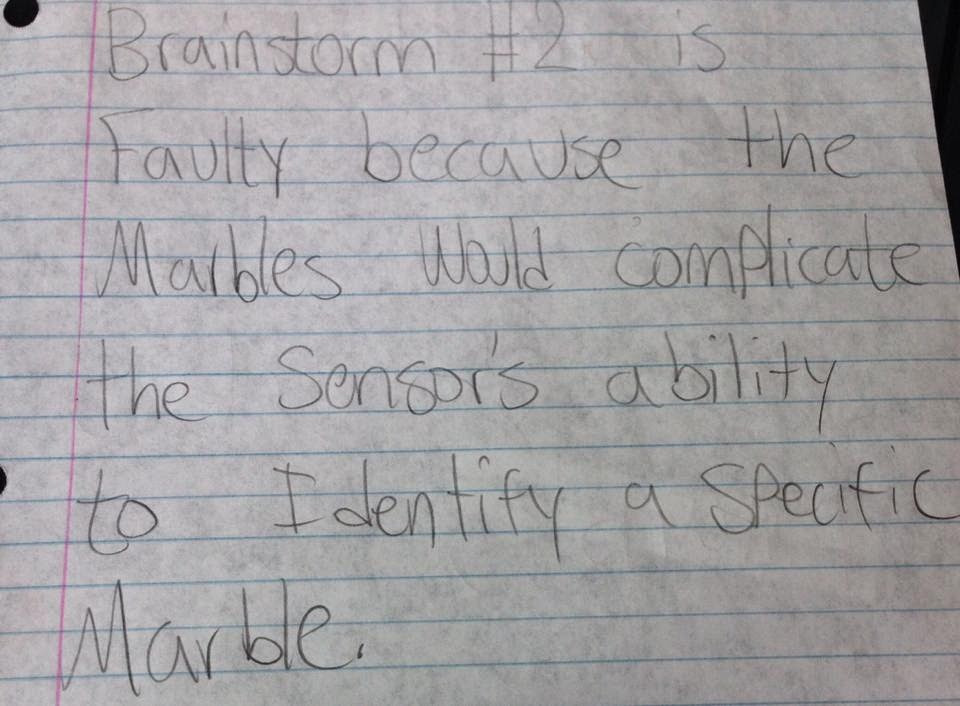 Brainstorm #2 is
Faulty because the
Marbles Would complicate
the Sensor's ability
to Identify a Specific
Marble.